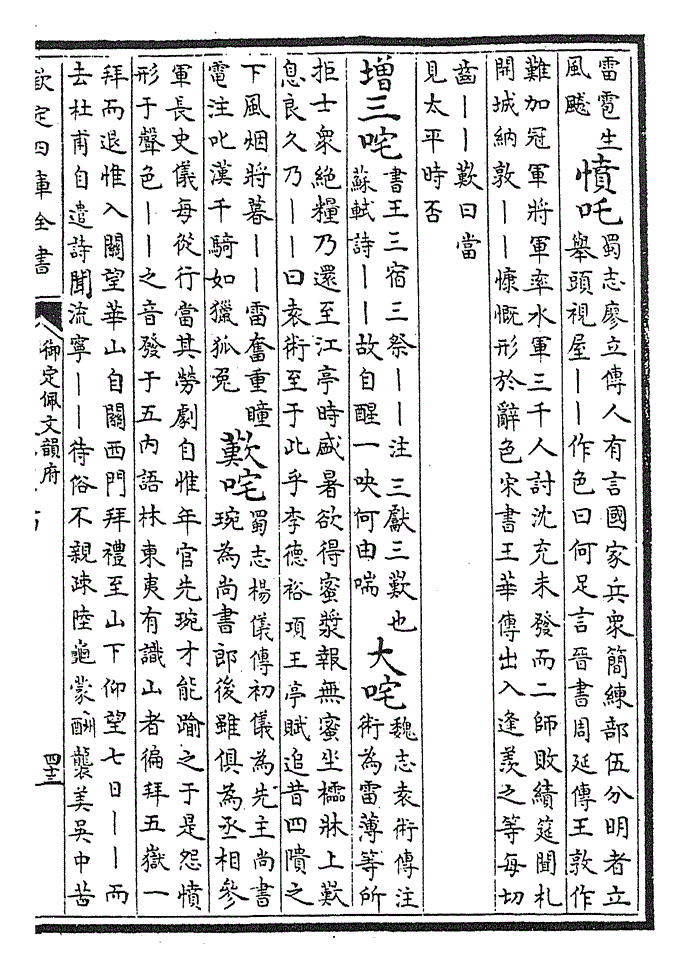 雷雹生
風飇
憤吒
蜀志廖立傳人有言國家兵衆簡練部伍分明者立
舉頭視屋——作色曰何足言晉書周延傳王敦作
難加冠軍將軍率水軍三千人討沈充未發而二師敗績筵聞札
開城納敦——慷慨形於辭色宋書王華傳出入逢羨之等每切
齒——歎曰當
見太平時否
增三咤
書王三宿三祭——注三獻三歎也
蘇軾詩——故自醒一吷何由喘
大咤
魏志袁術傳注
術為雷薄等所
拒士衆絶糧乃還至江亭時盛暑欲得蜜漿報無蜜坐櫺牀上歎
息良久乃——曰袁術至于此乎李德裕項王亭賦追昔四隤之
下風烟將暮——雷奮重瞳
電注叱漢千騎如獵狐兎
歎咤
蜀志楊儀傳初儀為先主尚書
琬為尚書郎後雖俱為丞相參
軍長史儀每從行當其勞劇自惟年官先琬才能踰之于是怨憤
形于聲色——之音發于五内語林東夷有識山者徧拜五嶽一
拜而退惟入關望華山自關西門拜禮至山下仰望七日——而
去杜甫自遣詩聞流寧——待俗不親疎陸龜蒙酬襲美吳中苦
欽定四庫全書
御定佩文韻府
四十三